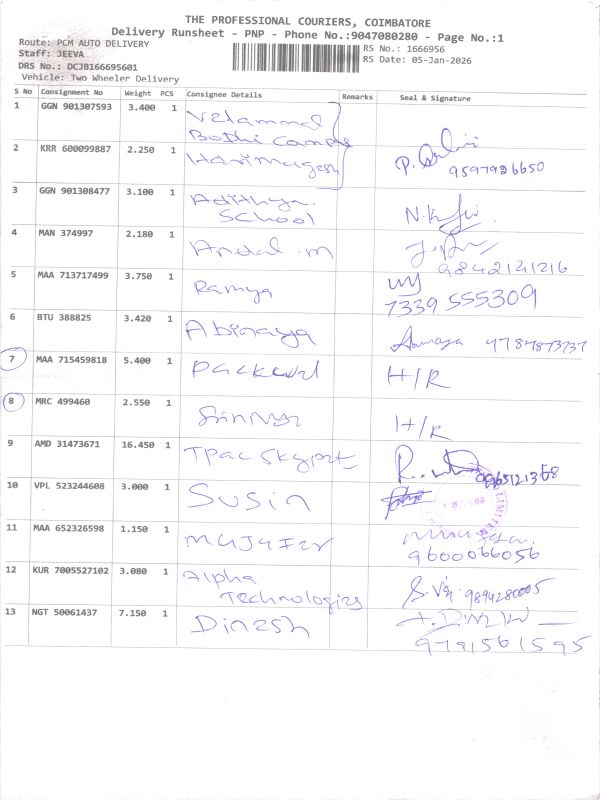 THE PROFESSIONAL COURIERS, COIMBATORE
Delivery Runsheet - PNP - Phone No.:9047080280 - Page No.:1
Route: PCM AUTO DELIVERY
RS No.: 1666956
Staff: JEEVA
RS Date: 05-Jan-2026
DRS No.: DCJB166695601
Vehicle: Two Wheeler Delivery
S No Consignment No Weight PCS Consignee Details Remarks Seal & Signature
1 GGN 901307593 3.400 1 Velammal
Bothi Campus
2 KRR 600099887 2.250 1 Harimugesh
9597926650
3 GGN 901308477 3.100 1 Adithya.
School
4 MAN 374997 2.180 1 Andal.m
9842141216
5 MAA 713717499 3.750 1 Ramya
7339 555309
6 BTU 388825 3.420 1 Abinaya
7 MAA 715459818 5.400 1 H/R
8 MRC 499460 2.550 1 H/R
9 AMD 31473671 16.450 1 Tpac Skyprt
10 VPL 523244608 3.000 1 Susin
11 MAA 652326598 1.150 1 Mujafer
9600066056
12 KUR 7005527102 3.080 1 Alpha
Technologies 9894280005
13 NGT 50061437 7.150 1 Dinesh
9791561595